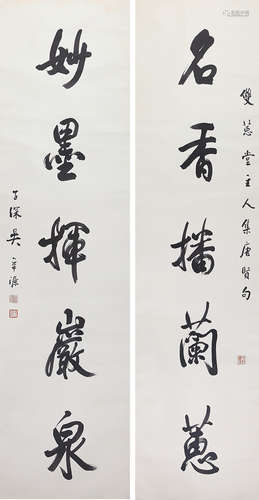 名香播蘭蕙
雙蕙堂主人集唐賢句
妙墨揮巖泉
子深吳華源